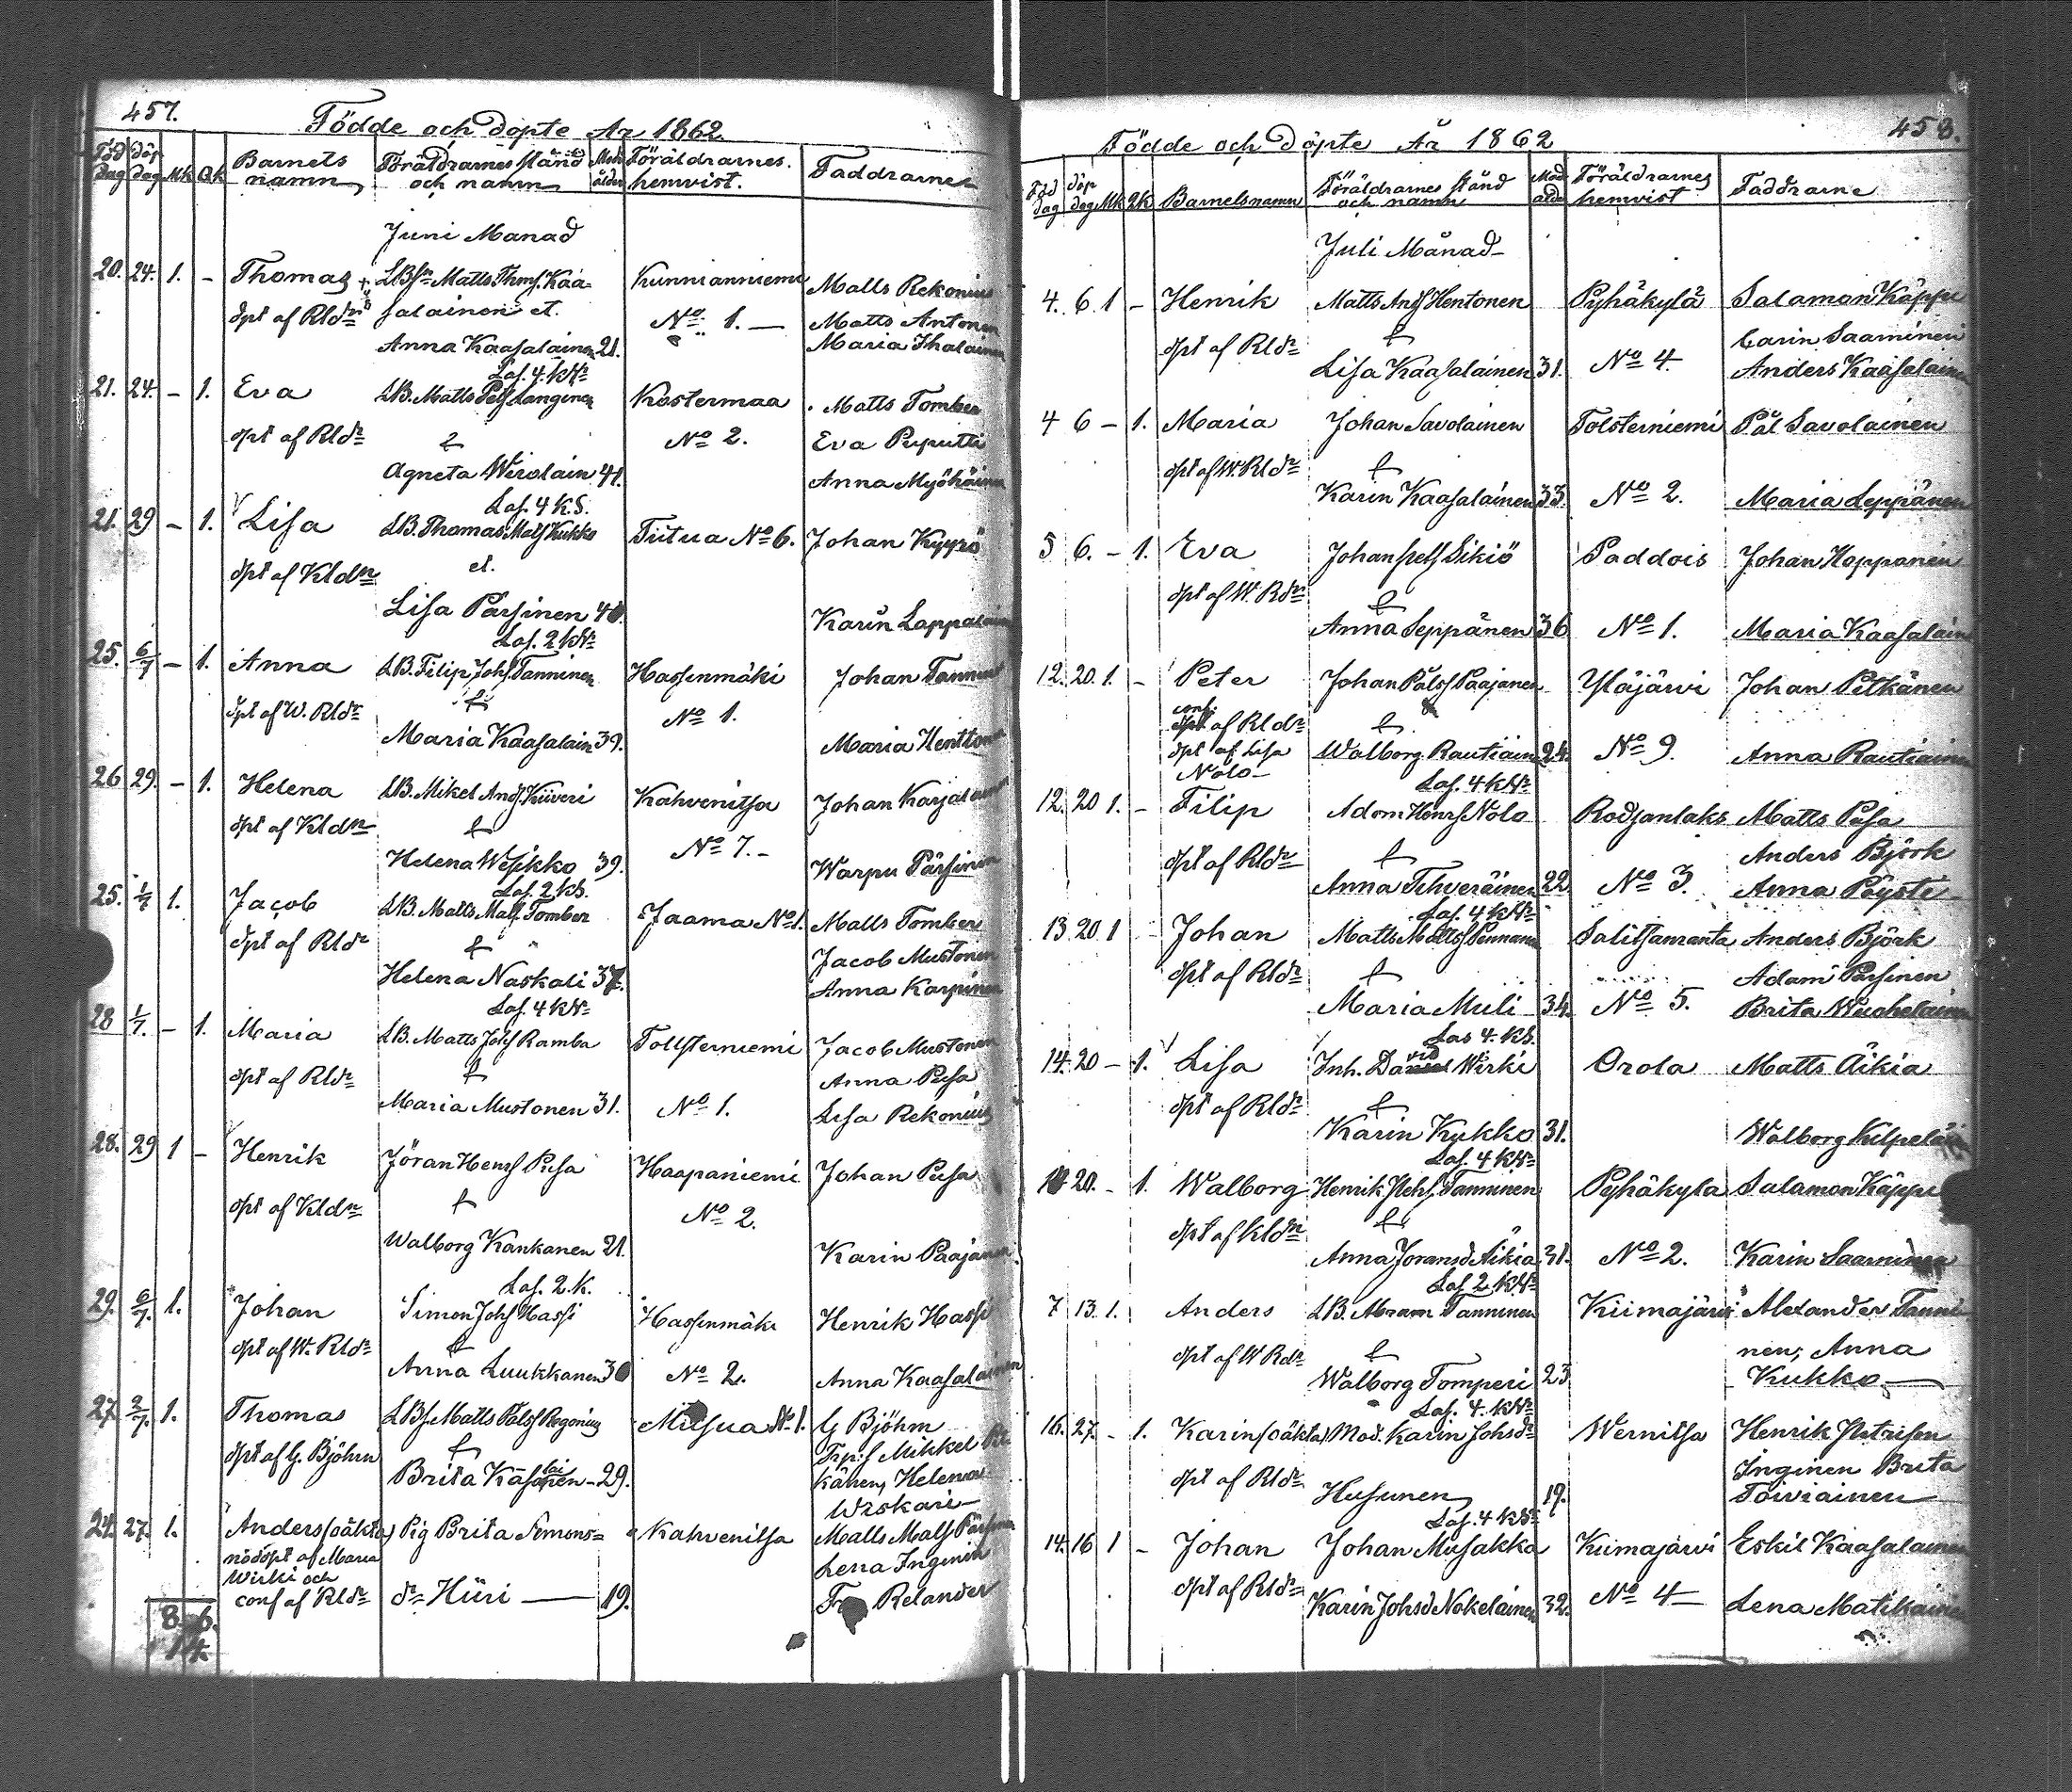 457.
Födde och döpte År 1862
Föd dag döp dag Mk Qk Barnets namn Föräldrarnes stånd och namn Mod. ålder Föräldrarnes hemvist. Faddrarne
Juni Manad
20. 24. 1. – Thomas LBsn Matts Thms. Kaa= Kunnianniemi Matts Rekonius
dpt af Rldr salainen et. No 1. – Matts Antonen
Anna Kaasalainen 21. Maria Ihalainen
Las. 4. kNr
21. 24. – 1. Eva LB. Matts Pets Langinen Kostermaa Matts Tomber
dpt af Rldr & No 2. Eva Puputti
Agneta Wirolain 41. Anna Myöhäinen
Las. 4 k.S.
21. 29 – 1. Lisa LB. Thomas Mats Kukko Tiitua No 6. Johan Kyyrö
dpt af Kldn et.
Lisa Pärsinen 40. Karin Lappalain
Las. 2 kNr
25. 6/7 – 1. Anna LB. Filip Johs Tanninen Hassinmäki Johan Tannin
dpt af W. Rldr & No 1.
Maria Kaasalain 39. Maria Henttonen
26 29. – 1. Helena LB. Mikel Ands Kiiveri Kahvenitsa Johan Karjalain
dpt af Kldn & No 7. –
Helena Wesikko 39. Warpu Pärsinen
Las. 2 kS.
25. 1/7 1. Jacob LB. Matts Mats Tomber Jaama No 1. Matts Tomber
dpt af Rldr & Jacob Mustonen
Helena Naskali 37. Anna Karpinen
Las. 4 kNr
28 1/7. – 1. Maria LB. Matts Johs Ramba Tollsterniemi Jacob Mustonen
dpt af Rldr & Anna Pusa
Maria Mustonen 31. No 1. Lisa Rekonius
28. 29 1 – Henrik Jöran Hens Pusa Haapaniemi Johan Pusa
dpt af Kldn & No 2.
Walborg Kankanen 21. Karin Paajanen
Las. 2. k.
29. 6/7. 1. Johan Simon Johs Hassi Hassinmäki Henrik Hassi
dpt af W. Rldr &
Anna Luukkanen 30 No 2. Anna Kaasalainen
27 2/7. 1. Thomas LBs Matts Påls Rogonius Mitsua No 1. G Bjöhm
dpt af G. Bjöhm & Trp:s Mikkel Pit
Brita Kasolainen – 29. känen, Helena
Wiskari –
24. 27. 1. Anders (oäkta) Pig Brita Simons= Kahvenitsa Matts Mats Pärsinen
nöddpt af Maria Lena Inginin
Wirki och
conf af Rldr dr Hüri — 19. Relander
8. 6.
14.
458.
Födde och döpte År 1862
Föd dag döp dag Mk Qk Barnets namn Föräldrarnes stånd och namn Mod ålde Föräldrarnes hemvist Faddrarne
Juli Månad
4. 6. 1 – Henrik Matts Ands Hentonen Pyhäkylä Salamon Käppi
dpt af Rldr & Carin Saaminen
Lisa Kaasalainen 31. No 4. Anders Kaasalainen
4 6 – 1. Maria Johan Savolainen Tolsterniemi Pål Savolainen
dpt af W. Rldr &
Karin Kaasalainen 33. No 2. Maria Leppänen
5 6. – 1. Eva Johan Pets Sikiö Paddois Johan Hoppanen
dpt af W. Rdr &
Anna Seppänen 36 No 1. Maria Kaasalain
12. 20. 1. – Peter Johan Påls Paajanen Yläjärvi Johan Pitkänen
conf.
dpt af Rldr &
dpt af Lisa Walborg Rautiain 24. No 9. Anna Rautiainen
Nolo – Las. 4 kNr
12. 20 1. – Filip Adom Henrs Nolo Rodjanlaks Matts Pusa
dpt af Rldr & Anders Björk
Anna Tihveräinen 22 No 3. Anna Pöysti
Las. 4 kNr
13 20 1 Johan Matts Matts Pennanen Salitsanranta Anders Björk
dpt af Rldr & Adam Pärsinen
Maria Muli 34. No 5. Brita Wuohelainen
Las 4. kS.
14. 20 – 1. Lisa Inh. David Wirki Orola Matts Äikiä
dpt af Rldr &
Karin Kukko 31. Walborg Kilpeläin
Las. 4 kNr
20. – 1. Walborg Henrik Hens Tanninen Pyhäkyla Salamon Käppi
dpt af Kldn &
Anna Joransd Äikiä 31. No 2. Karin Saaminen
Las 2 kNr
7 13. 1. Anders LB. Abram Tanninen Kiimajärvi Alexander Tanni
dpt af W Rdr & nen; Anna
Walborg Tomperi 23 Kukko –
Las. 4. kNr
16. 27. – 1. Karin (oäkta) Mod. Karin Johsdr Wernitsa Henrik Petrisen
dpt af Rldr Inginen Brita
Husunen 19. Toiviainen
Las. 4 kNr
14. 16 1 – Johan Johan Musakka Kiimajärvi Eskil Kaasalainen
dpt af Rldr Karin Johsd Nokelainen 32. No 4 – Lena Matikainen